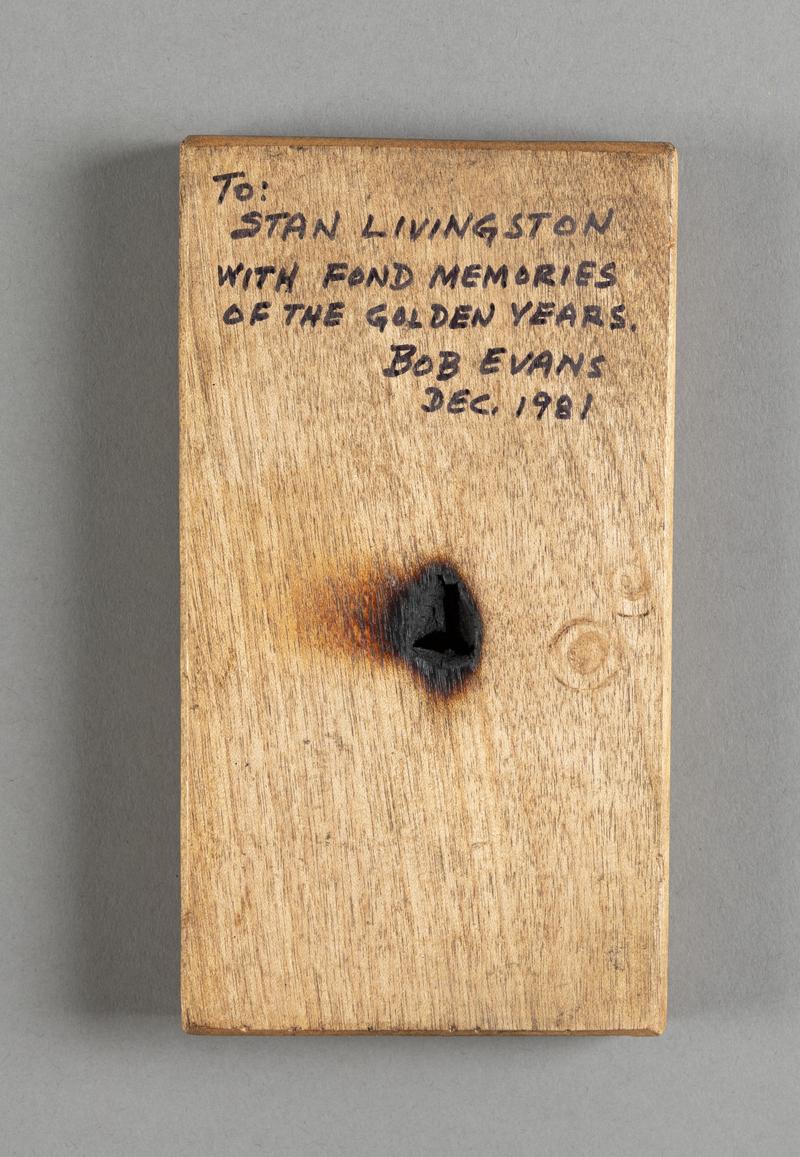 To:
STAN LIVINGSTON
WITH FOND MEMORIES
OF THE GOLDEN YEARS.
BOB EVANS
DEC. 1981